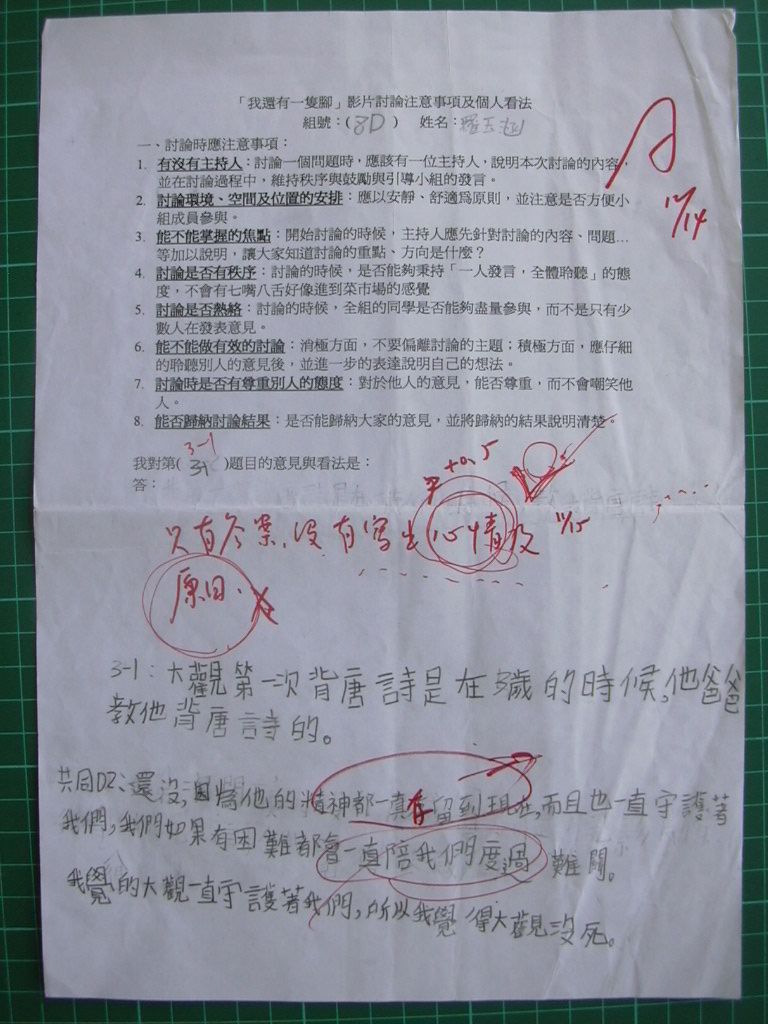 「我還有一隻腳」影片討論注意事項及個人看法
組號：(8D) 姓名：羅玉
A
11/14
一、討論時應注意事項：
1. 有沒有主持人：討論一個問題時，應該有一位主持人，說明本次討論的內容，
並在討論過程中，維持秩序與鼓勵與引導小組的發言。
2. 討論環境、空間及位置的安排：應以安靜、舒適為原則，並注意是否方便小
組成員參與。
3. 能不能掌握的焦點：開始討論的時候，主持人應先針對討論的內容、問題…
等加以說明，讓大家知道討論的重點、方向是什麼？
4. 討論是否有秩序：討論的時候，是否能夠秉持「一人發言，全體聆聽」的態
度，不會有七嘴八舌好像進到菜市場的感覺
5. 討論是否熱絡：討論的時候，全組的同學是否能夠盡量參與，而不是只有少
數人在發表意見。
6. 能不能做有效的討論：消極方面，不要偏離討論的主題；積極方面，應仔細
的聆聽別人的意見後，並進一步的表達說明自己的想法。
7. 討論時是否有尊重別人的態度：對於他人的意見，能否尊重，而不會嘲笑他
人。
8. 能否歸納討論結果：是否能歸納大家的意見，並將歸納的結果說明清楚。
3-1
我對第( 3-1 )題目的意見與看法是：
答：
+0.5
只有答案，沒有寫出心情及 11/15
原因.
3-1：大觀第一次背唐詩是在3歲的時候，他爸爸
教他背唐詩的。
共同D2、還沒，因為他的精神都一直存留到現在，而且也一直守護著
我們，我們如果有困難都會一直陪我們度過難關。
我覺的大觀一直守護著我們，所以我覺得大觀沒死。